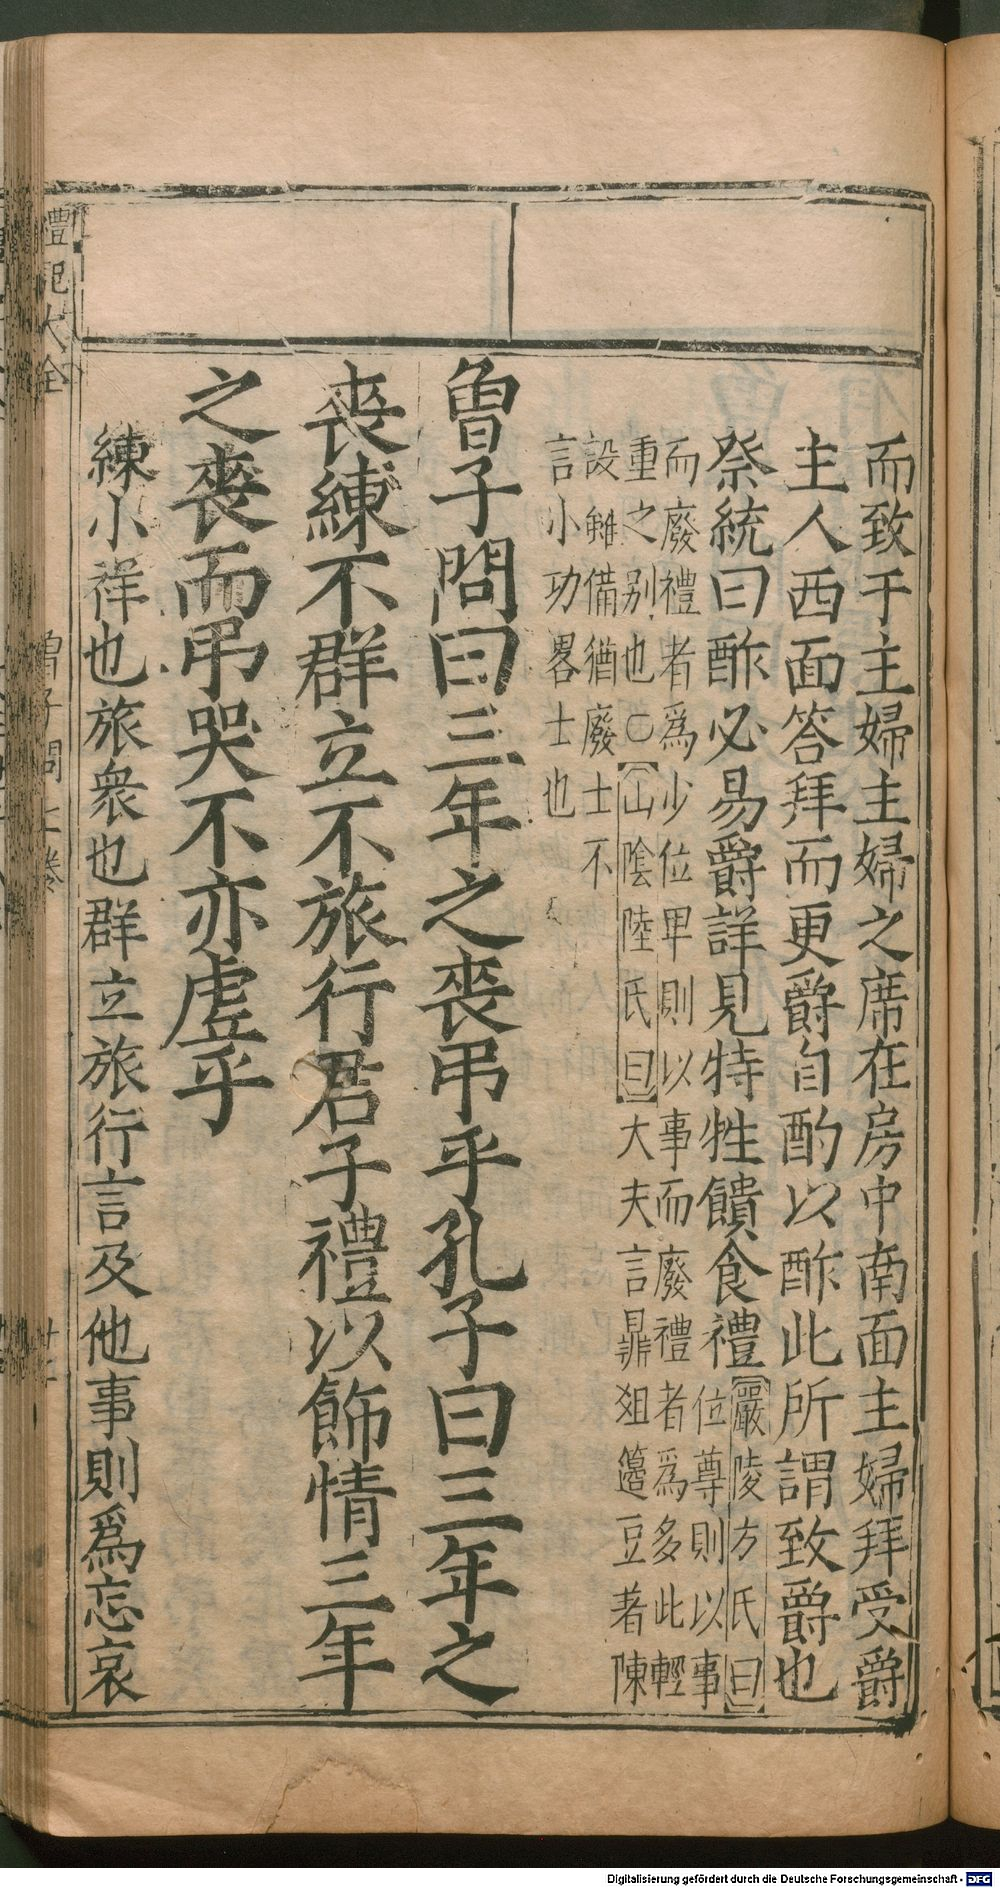 而致于主婦主婦之席在房中南面主婦拜受爵
主人西面答拜而更爵自酌以酢此所謂致爵也
祭統曰酢必易爵詳見特牲饋食禮嚴陵方氏曰
位尊則以事
而廢禮者為少位卑則以事而廢禮者為多此輕
重之别也○山陰陸氏曰大夫言鼎俎籩豆著陳
設雖備猶廢士不
言小功畧士也
曾子問曰三年之喪吊乎孔子曰三年之
喪練不群立不旅行君子禮以飾情三年
之喪而吊哭不亦虛乎
練小祥也旅衆也群立旅行言及他事則為忘哀
禮記大全
曾子問七卷
Digitalisierung gefördert durch die Deutsche Forschungsgemeinschaft - DFG